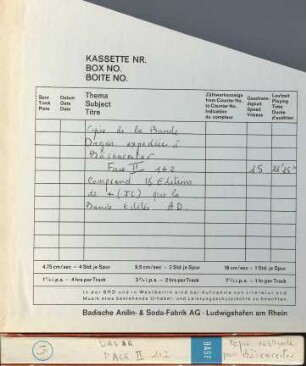 KASSETTE NR.
BOX NO.
BOITE NO.
Spur Track Piste
Datum Date Date
Thema Subject Titre
Zählwerkanzeige from Counter No. to Counter No. Indication du compteur
Geschwindigkeit Speed Vitesse
Laufzeit Playing Time Durée d'audition
Copie de la Bande
expédiée à
Face II 1+2
15
Comprend 16 Editions
de + que la
Bande Editée AD.
4,75 cm/sec – 4 Std. je Spur
9,5 cm/sec – 2 Std. je Spur
19 cm/sec – 1 Std. je Spur
1⅞ i.p.s. – 4 hrs per Track
3¾ i.p.s. – 2 hrs per Track
7½ i.p.s. – 1 hr per Track
In der BRD und in Westberlin sind bei Aufnahme von Literatur und
Musik etwa bestehende Urheber- und Leistungsschutzrechte zu beachten.
Badische Anilin- & Soda-Fabrik AG · Ludwigshafen am Rhein
FACE II 1+2
BASF
Copie
pour